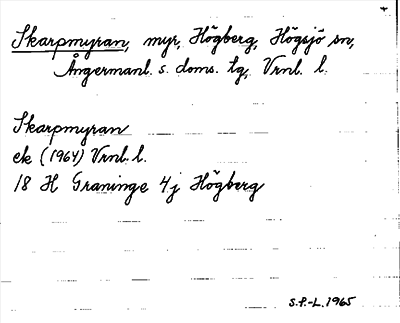 Skarpmyran, myr, Högberg, Högsjö sn,
Ångermanl. s. doms. lg, Vrnl. l.
Skarpmyran
ek (1964) Vrnl. l.
18 H Graninge 4j Högberg
S.P.-L. 1965